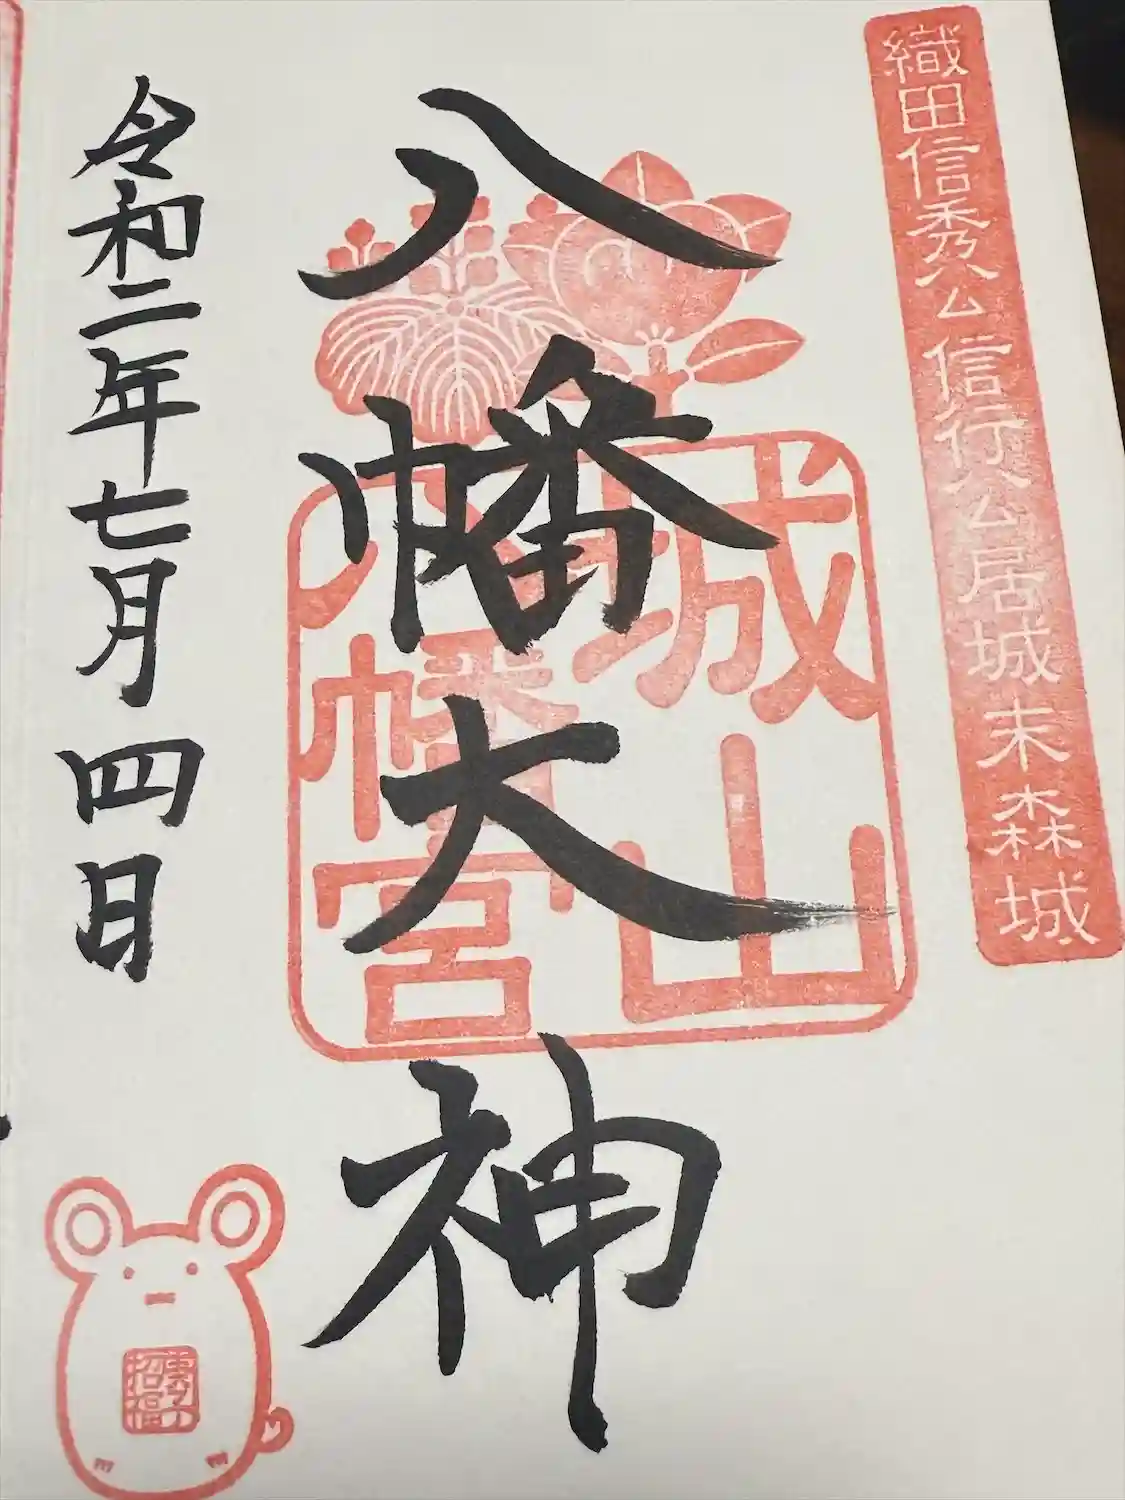 織田信秀公信行公居城末森城
八幡大神
城山
八幡宮
令和二年七月四日
招福